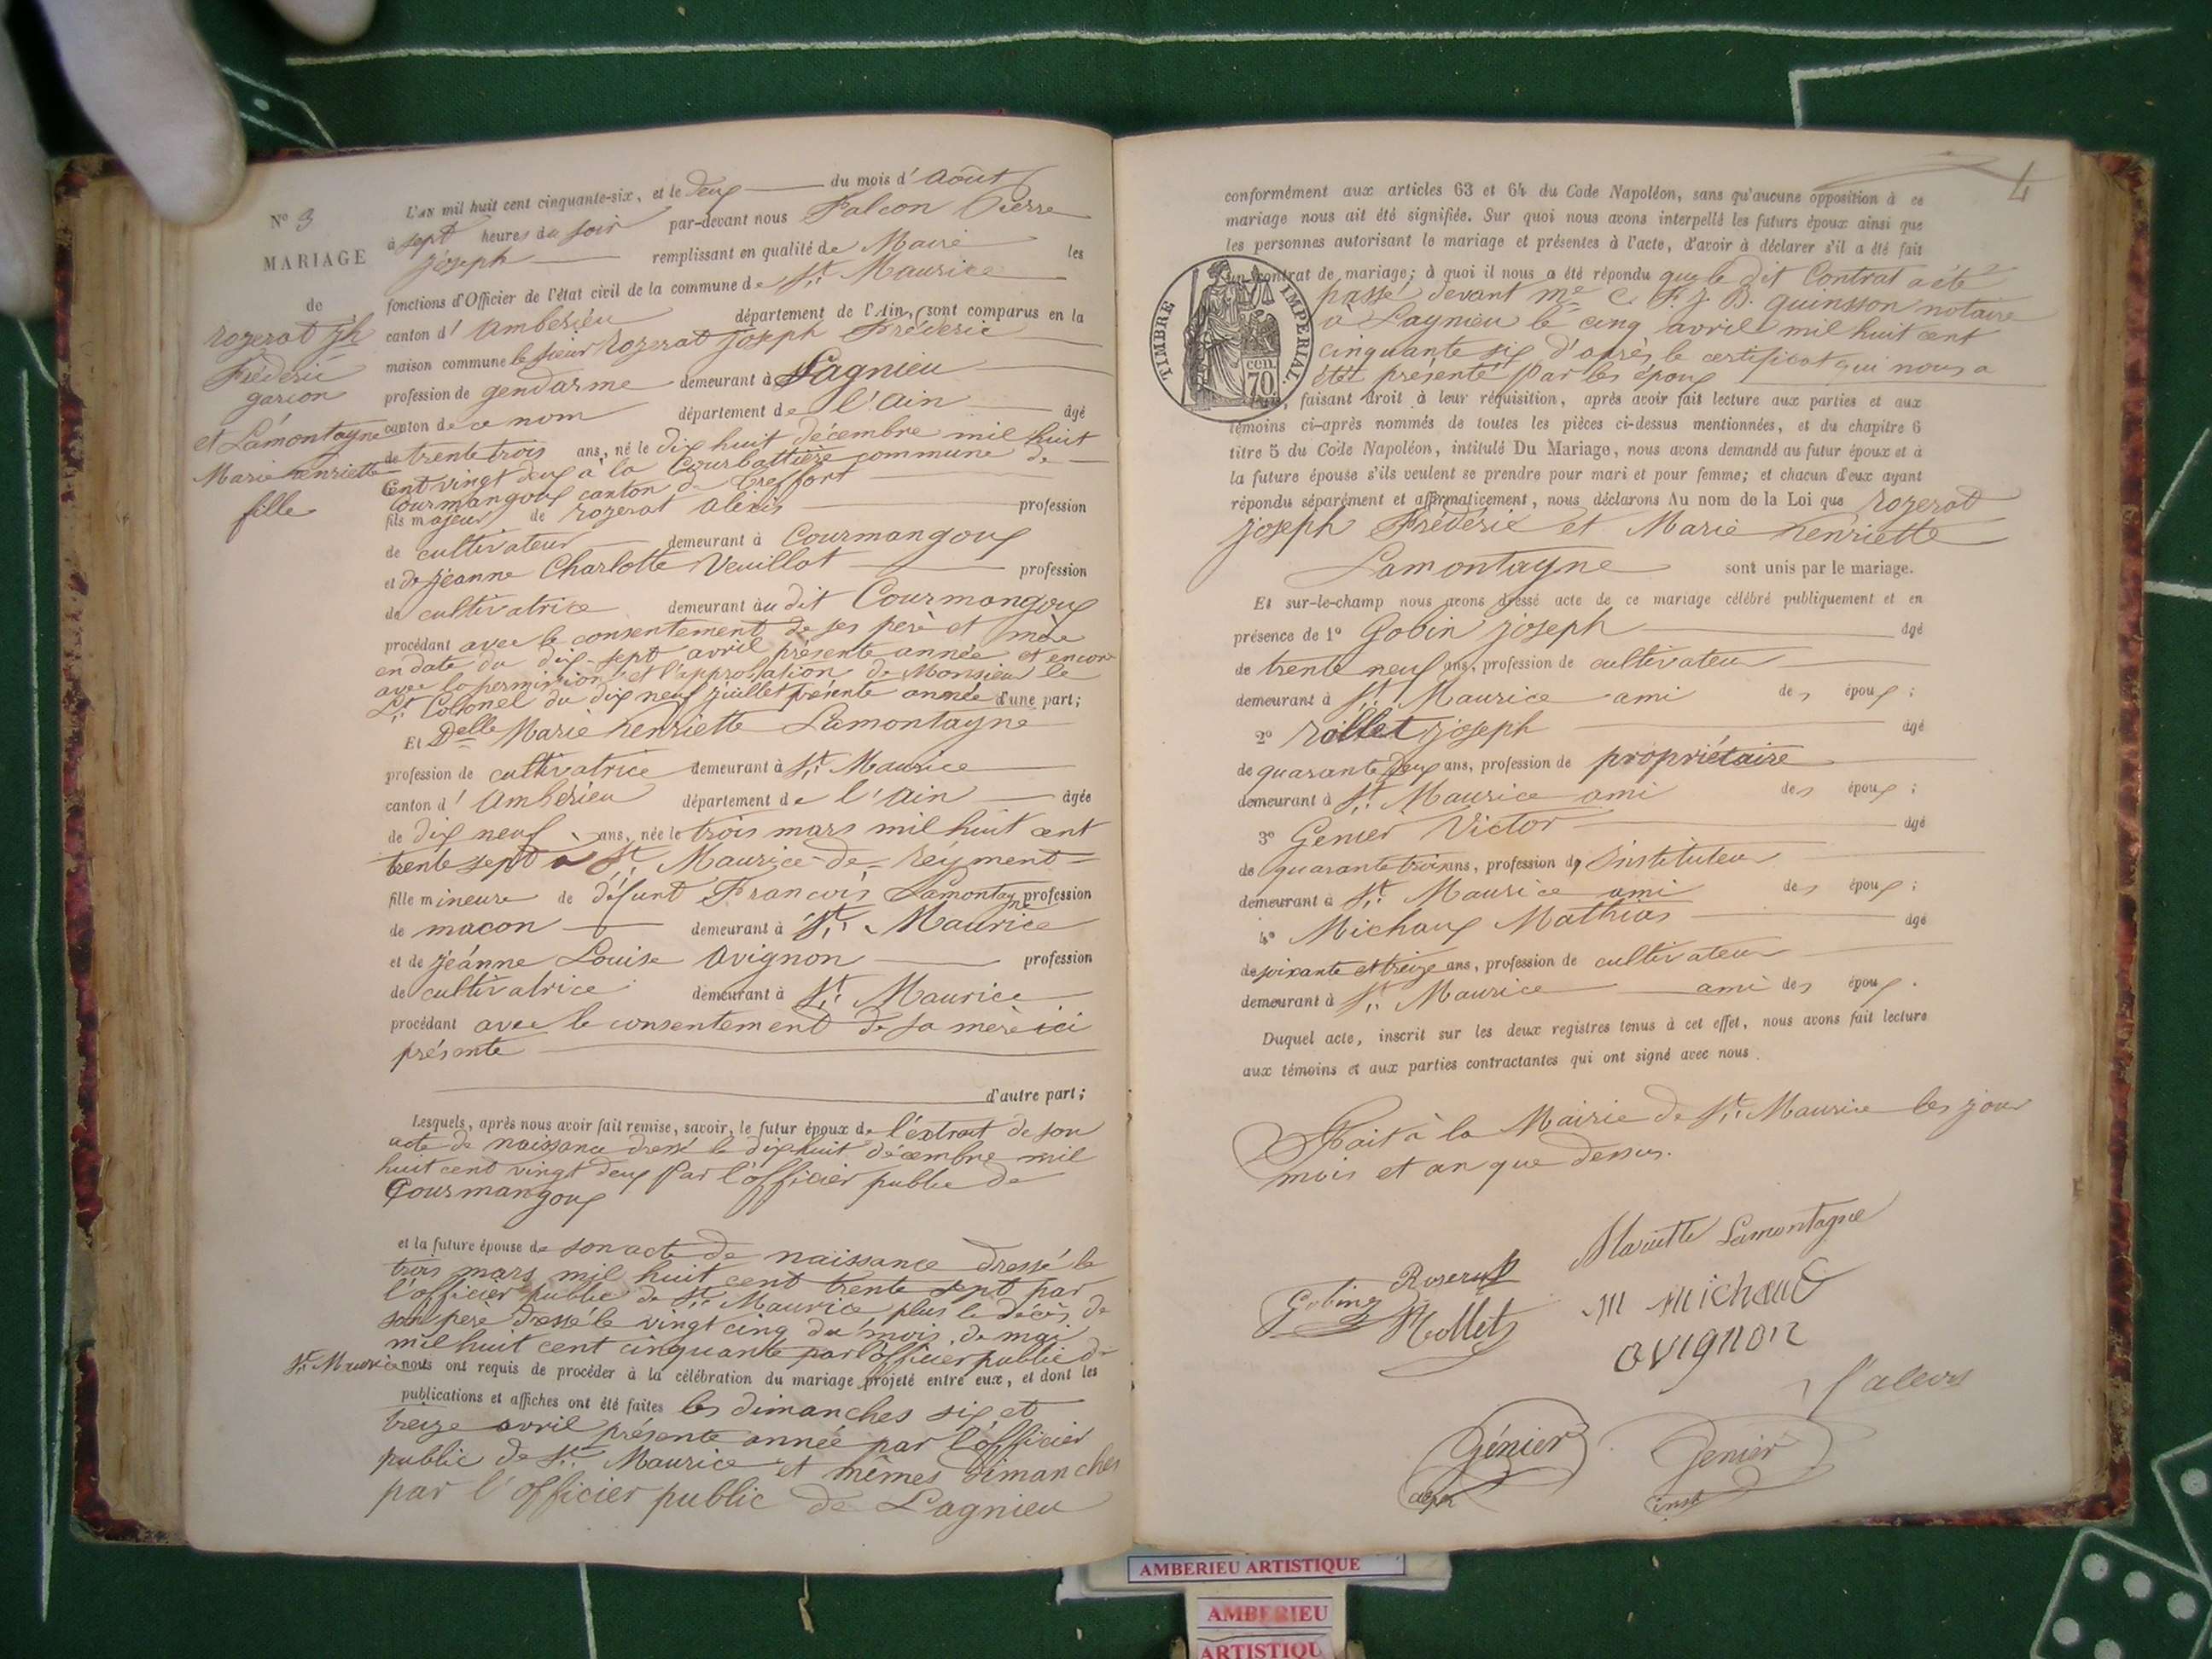 N° 3
MARIAGE
de
rozerat Jh
Fréderic
garcon
et Lamontagne
Marie henriette
fille
L'AN mil huit cent cinquante-six, et le deux du mois d'Aôut
à sept heures du soir par-devant nous Falcon Pierre
joseph remplissant en qualité de Maire les
fonctions d'Officier de l'état civil de la commune de St Maurice
canton d'Ambérieu département de l'Ain, sont comparus en la
maison commune le sieur Rozerat Joseph Fréderic
profession de gendarme demeurant à Lagnieu
canton de ce nom département de l'Ain âgé
de trente trois ans, né le dix huit décembre mil huit
cent vingt deux à la Courbattière commune de
Courmangoux canton de Treffort
fils majeur de rozerat alexis profession
de cultivateur demeurant à Courmangoux
et de jeanne Charlotte Veuillot profession
de cultivatrice demeurant au dit Courmangoux
procédant avec le consentement de ses père et mère
en date du dix-sept avril présente année et encore
avec la permission et l'approbation de Monsieur le
Lt Colonel du dix neuf juillet présente année d'une part;
Et Delle Marie henriette Lamontagne
profession de cultivatrice demeurant à St Maurice
canton d'Ambérieu département de l'Ain âgée
de dix neuf ans, née le trois mars mil huit cent
trente sept à St Maurice-de-reyment
fille mineure de défunt Francois Lamontagne profession
de macon demeurant à St Maurice
et de jeanne Louise Avignon profession
de cultivatrice demeurant à St Maurice
procédant avec le consentement de sa mère ici
présente
d'autre part;
Lesquels, après nous avoir fait remise, savoir, le futur époux de l'extrait de son
acte de naissance dressé le dix huit décembre mil
huit cent vingt deux par l'officier public de
Courmangoux
et la future épouse de son acte de naissance dressé le
trois mars mil huit cent trente sept par
l'officier public de St Maurice, plus le décès de
son père dressé le vingt cinq du mois de mai
mil huit cent cinquante par l'officier public de
St Maurice nous ont requis de procéder à la célébration du mariage projeté entre eux, et dont les
publications et affiches ont été faites les dimanches six et
treize avril présente année par l'officier
public de St Maurice et mêmes dimanches
par l'officier public de Lagnieu
4
conformément aux articles 63 et 64 du Code Napoléon, sans qu'aucune opposition à ce
mariage nous ait été signifiée. Sur quoi nous avons interpellé les futurs époux ainsi que
les personnes autorisant le mariage et présentes à l'acte, d'avoir à déclarer s'il a été fait
un contrat de mariage; à quoi il nous a été répondu que le dit Contrat a été
passé devant me C. F. J. B. quinsson notaire
à Lagnieu le cinq avril mil huit cent
cinquante six d'après le certificat qui nous a
été présenté par les époux
TIMBRE IMPERIAL.
70 cen
faisant droit à leur réquisition, après avoir fait lecture aux parties et aux
témoins ci-après nommés de toutes les pièces ci-dessus mentionnées, et du chapitre 6
titre 5 du Code Napoléon, intitulé Du Mariage, nous avons demandé au futur époux et à
la future épouse s'ils veulent se prendre pour mari et pour femme; et chacun d'eux ayant
répondu séparément et affirmaticement, nous déclarons Au nom de la Loi que rozerat
joseph Fréderic et Marie henriette
Lamontagne sont unis par le mariage.
Et sur-le-champ nous avons dressé acte de ce mariage célébré publiquement et en
présence de 1° Gobin joseph âgé
de trente neuf ans, profession de cultivateur
demeurant à St Maurice ami des époux;
2° rollet joseph âgé
de quarante deux ans, profession de propriétaire
demeurant à St Maurice ami des époux;
3° Genier Victor âgé
de quarante trois ans, profession d'instituteur
demeurant à St Maurice ami des époux;
4° Michaux Mathias âgé
de soixante et treize ans, profession de cultivateur
demeurant à St Maurice ami des époux.
Duquel acte, inscrit sur les deux registres tenus à cet effet, nous avons fait lecture
aux témoins et aux parties contractantes qui ont signé avec nous.
Fait à la Mairie de St Maurice les jour
mois et an que dessus.
Mariette Lamontagne
Gobin
Rollet
m michaud
avignon
Génier
Genier
inst
AMBERIEU ARTISTIQUE
AMBERIEU
ARTISTIQU